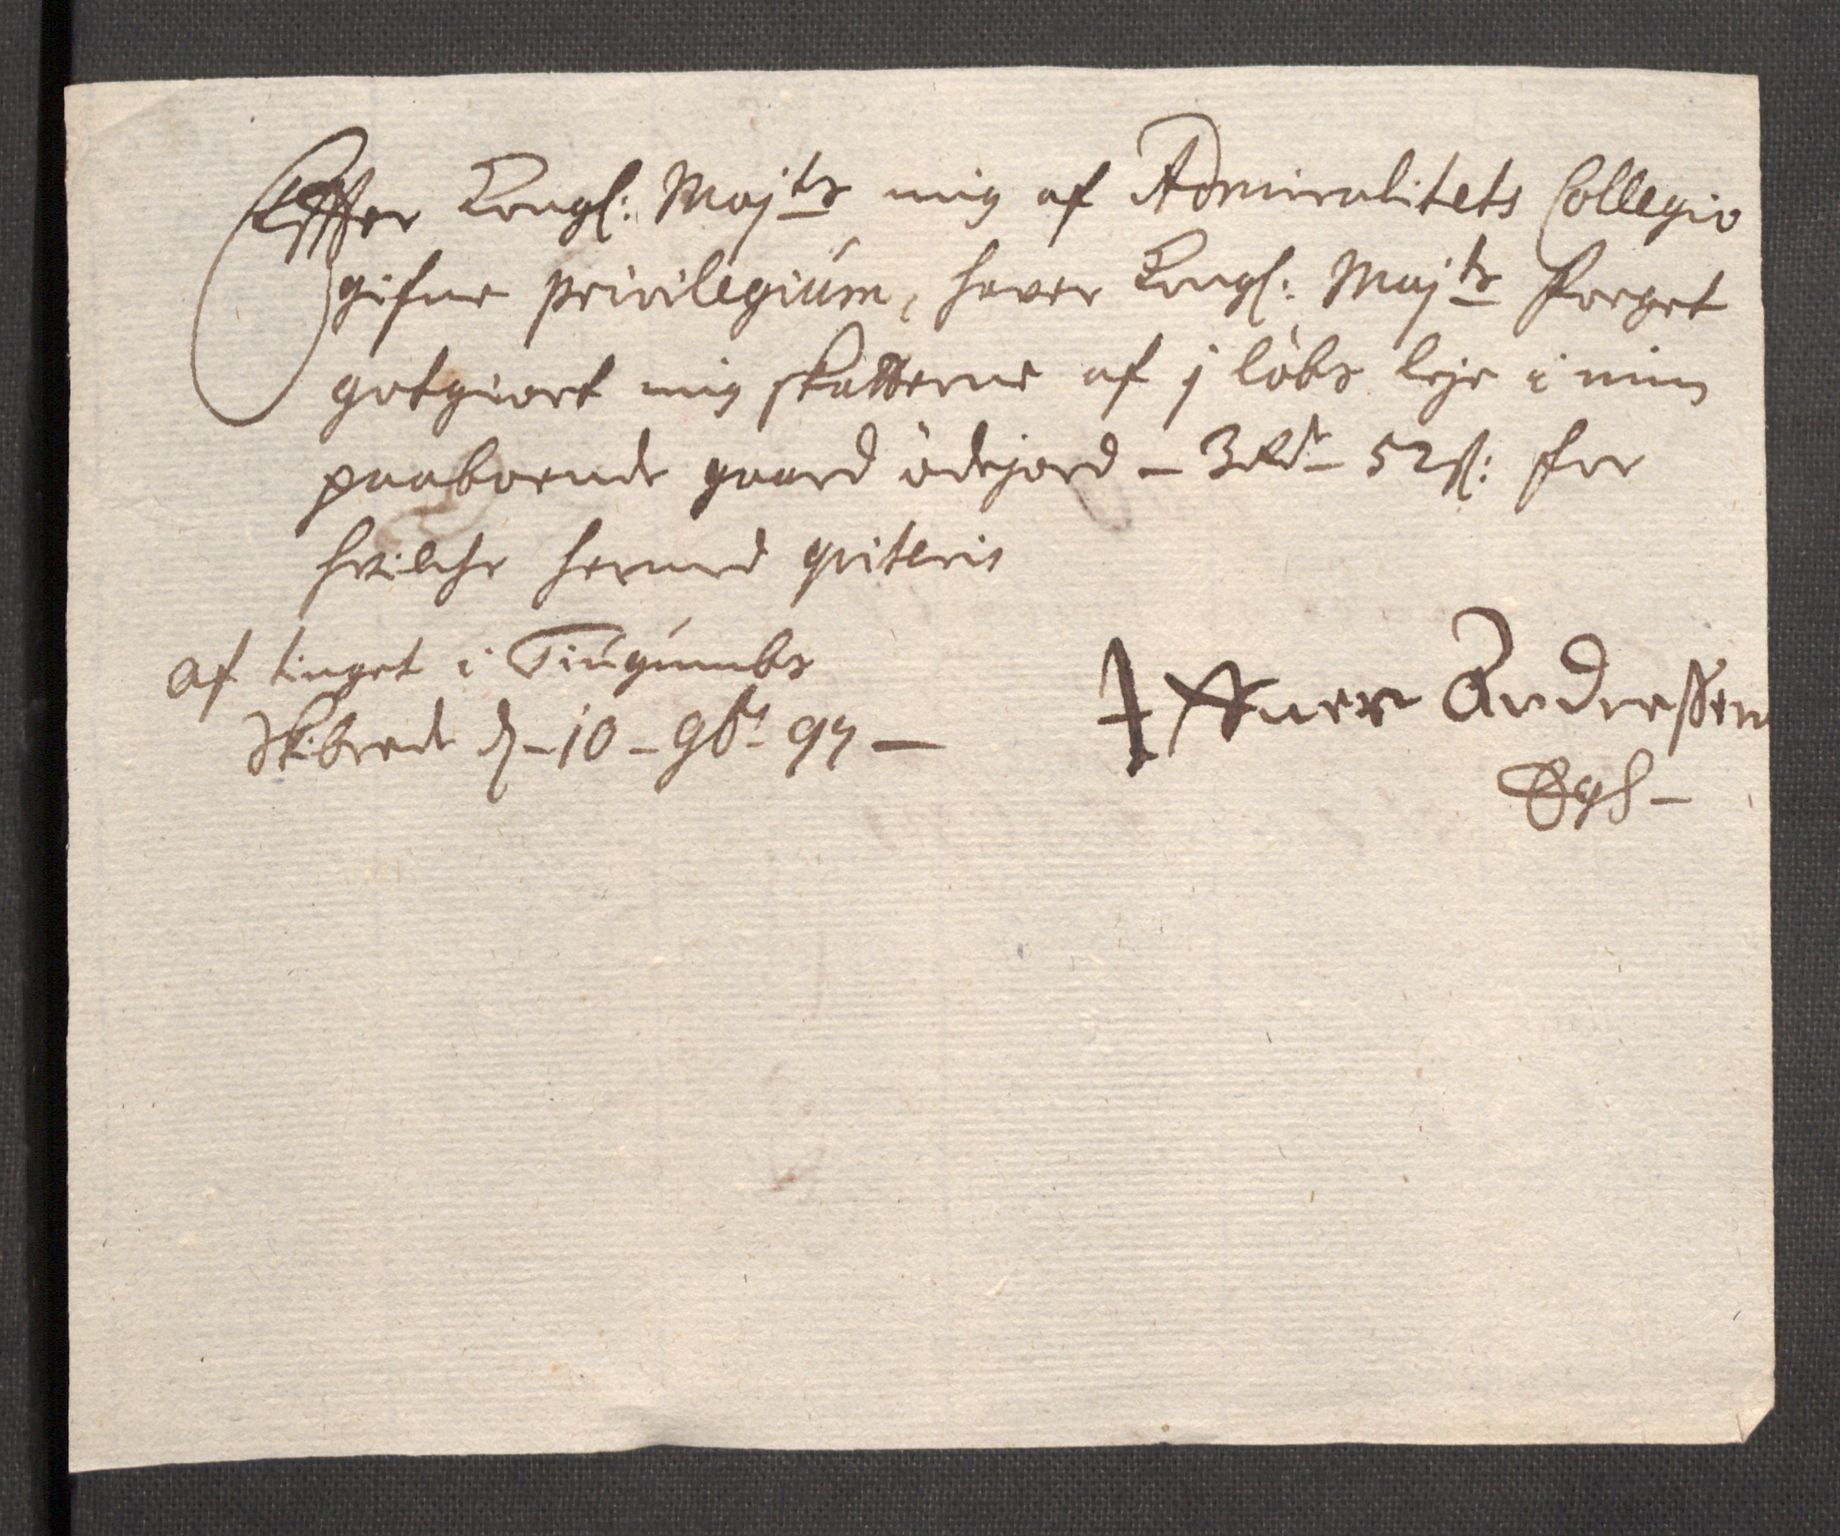 Effter Kongl: Maj:ts mig af Admiralitets Collegio
gifne privilegium, haver Kongl: Maj:ts Foget
gotgiort mig skatterne af j löbs leje i min
paaboende gaard ödejord – 3 Rdr – 52 s: for
hvilche hermed qviteris
af tinget i Tiugumbs
Skibrede d – 10 – 9br 97 –
Andersen